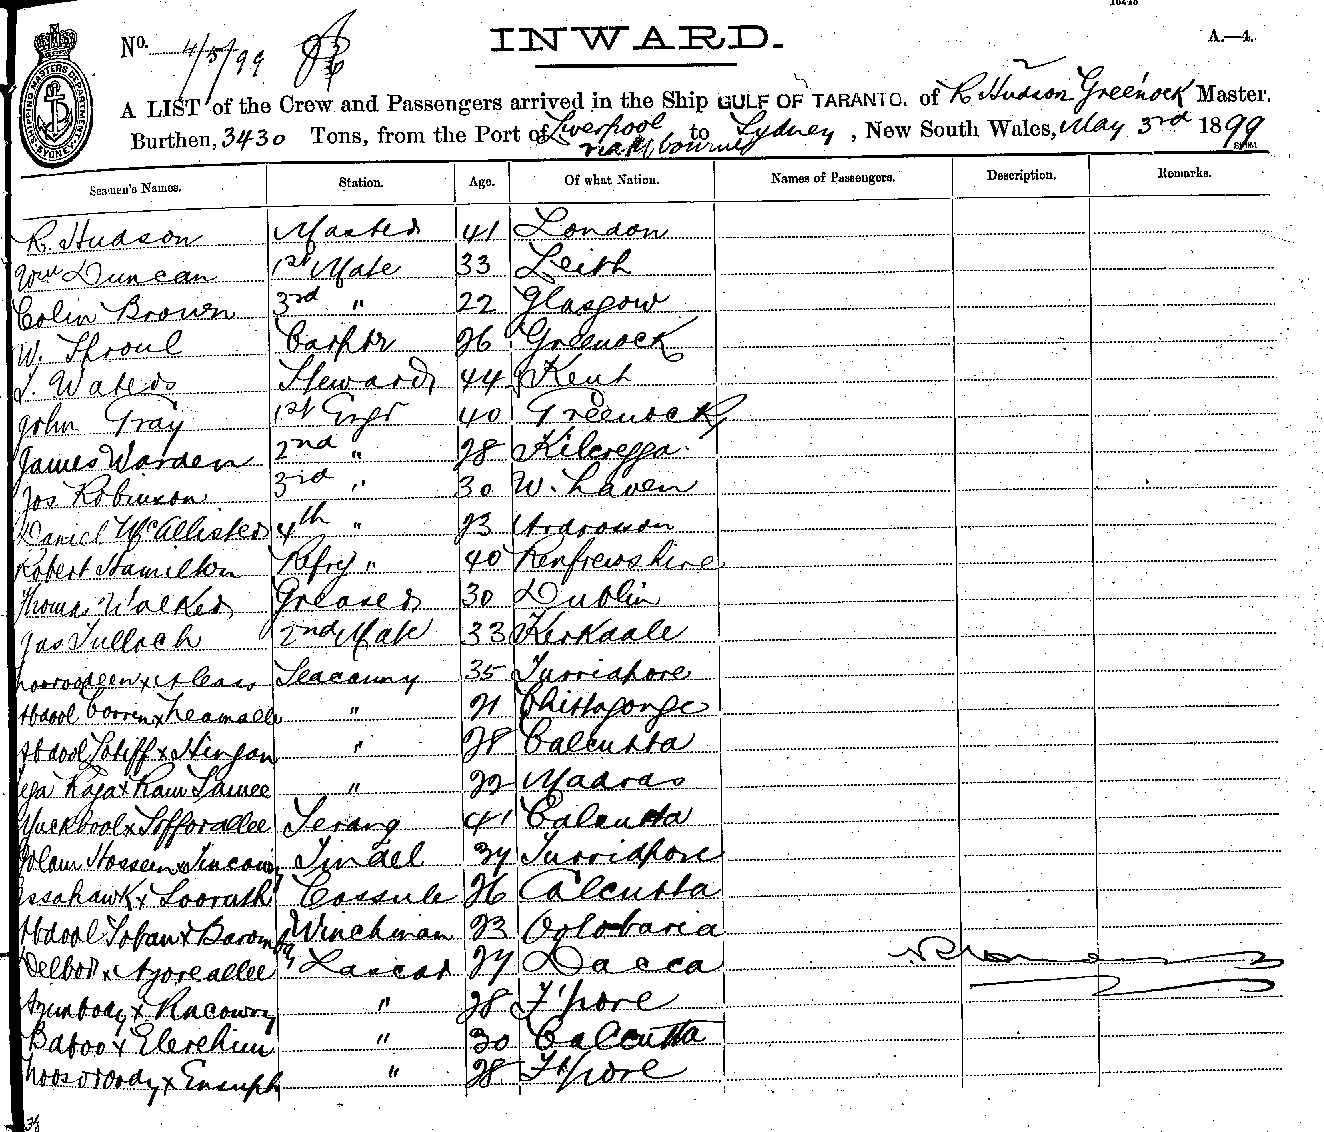 INWARD.
A.—4.
No. 4/5/99
A LIST of the Crew and Passengers arrived in the Ship GULF OF TARANTO. of R Hudson Greenock Master.
Burthen, 3430 Tons, from the Port of Liverpool via Melbourne to Sydney, New South Wales, May 3rd 1899
Seamen's Names. Station. Age. Of what Nation. Names of Passengers. Description. Remarks.
R. Hudson Master 41 London
Wm Duncan 1st Mate 33 Leith
Colin Brown 3rd " 22 Glasgow
W. Sproul Carptr 26 Greenock
J. Waters Steward 44 Kent
John Gray 1st Engr 40 Greenock
James Warden 2nd " 28 Kilcregga
Jos Robinson 3rd " 30 W. haven
Daniel McAllister 4th " 23 Ardrossan
Robert Hamilton Refrig " 40 Renfrewshire
Thomas Walker Greaser 30 Dublin
Jas Tulloch 2nd Mate 33 Kirkdale
Seacunny 35 Furridpore
Abdool " 21 Chittagonge
Abdool Lotiff x Hingan " 28 Calcutta
Raja x Ram Samee " 22 Madras
Muckbool x Sofforallee Serang 41 Calcutta
Golam Hossein x Tincowry Tindel 34 Furridpore
Essahawk x Soorath Cossub 26 Calcutta
Abdool Soban x Winchman 23 Oolobaria
Delbor x Azoreallee Lascar 24 Dacca
x Racowry " 28 F'pore
Baboo x Elerehim " 30 Calcutta
" 28 F'pore